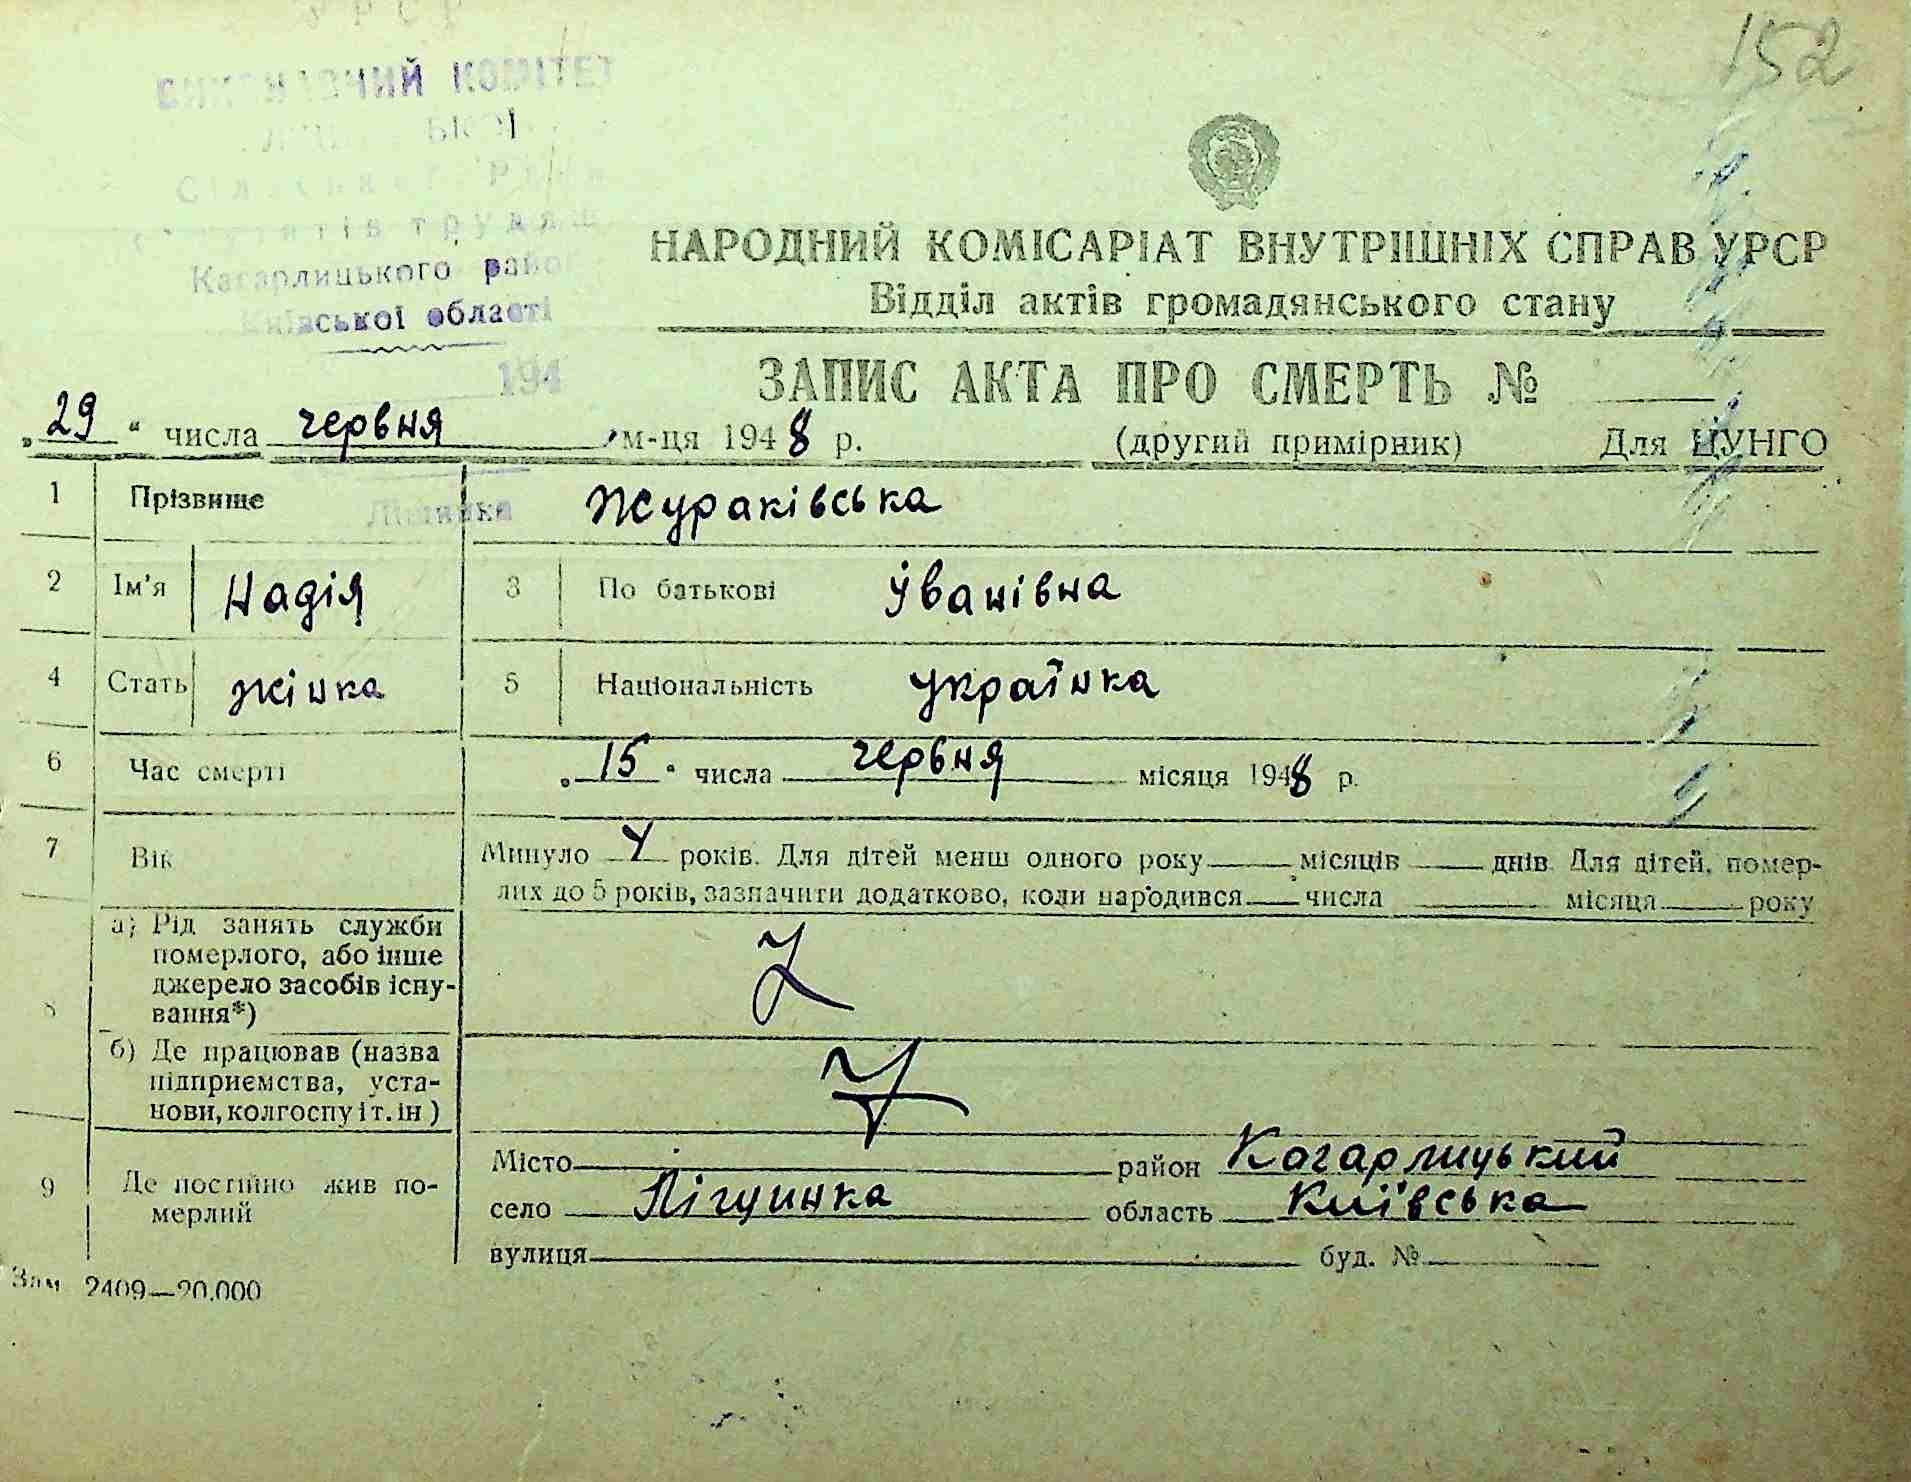 УРСР
152
ВИКОНАВЧИЙ КОМІТЕТ
Сільської Ради
депутатів трудящ.
Кагарлицького району
Київської області
194
НАРОДНИЙ КОМІСАРІАТ ВНУТРІШНІХ СПРАВ УРСР
Відділ актів громадянського стану
ЗАПИС АКТА ПРО СМЕРТЬ №
„29“ числа червня м-ця 1948 р. (другий примірник) Для ЦУНГО
1 Прізвище Жураківська
2 Ім'я Надія 3 По батькові Іванівна
4 Стать жінка 5 Національність українка
6 Час смерті „15“ числа червня місяця 1948 р.
7 Вік Минуло 4 років. Для дітей менш одного року місяців днів. Для дітей, помер-
лих до 5 років, зазначити додатково, коли народився числа місяця року
8 а) Рід занять служби
померлого, або інше
джерело засобів існу-
вання*)
б) Де працював (назва
підприємства, уста-
нови, колгоспу і т. ін)
9 Де постійно жив по-
мерлий
Місто район Кагарлицький
село область Київська
вулиця буд. №
Зам 2409—20.000